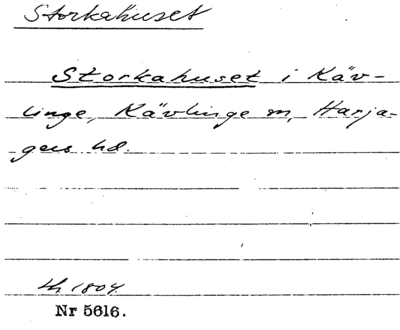 Storkahuset
Storkahuset i Käv-
linge, Kävlinge sn, Harja-
gers hd.
Lh 1804.
Nr 5616.